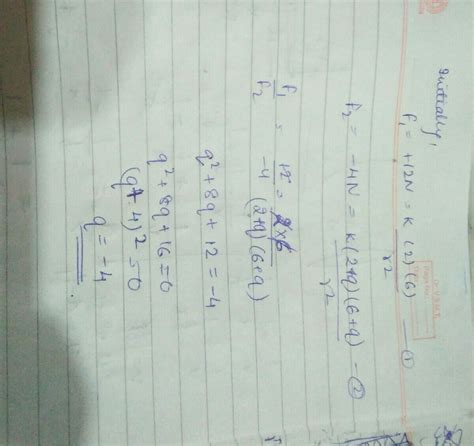 Initially,
F₁ = +12N = K (2) (6) / r² — ①
F₂ = -4N = K (2+q) (6+q) / r² — ②
F₁ / F₂ = 12 / -4 = 2×6 / (2+q) (6+q)
q² + 8q + 12 = -4
q² + 8q + 16 = 0
(q+4)² = 0
q = -4